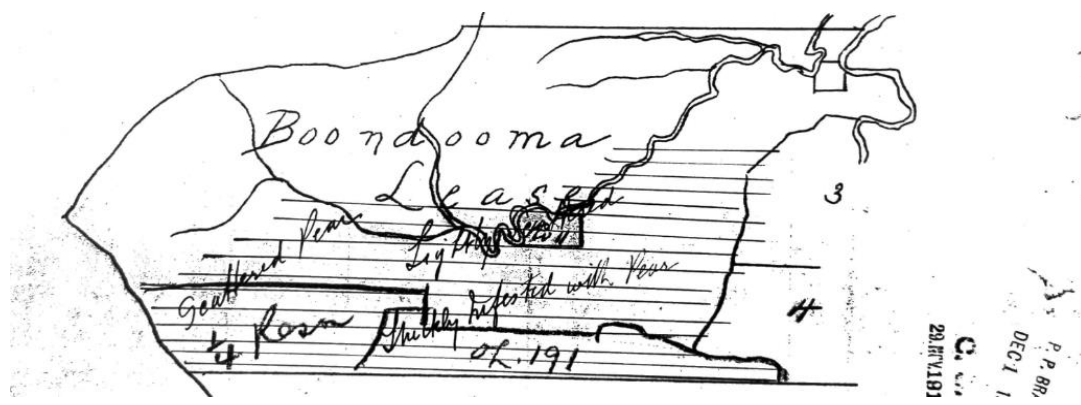 Boondooma
Lease
3
Scattered Pear
Lightly
Thickly Infested with Pear
4
1/4 Resn
OL. 191
P. P. BRA
DEC 1
C.
29.NOV.191